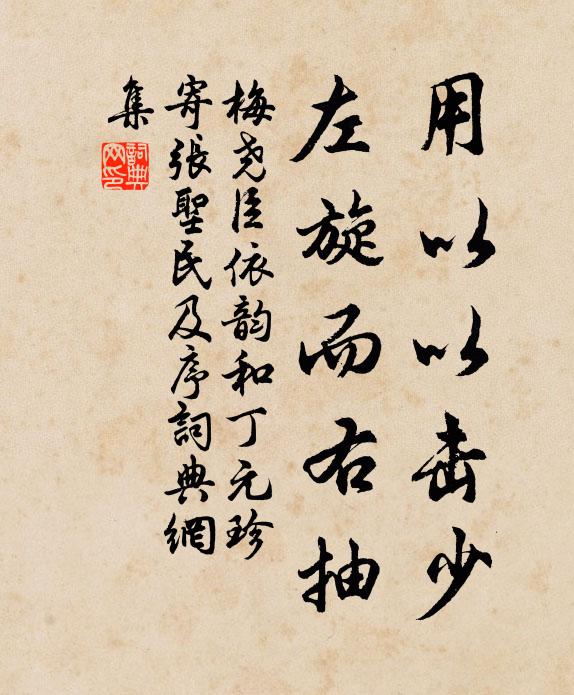 用以以击少
左旋而右抽
梅尧臣依韵和丁元珍
寄張聖民及序詞典網
集
詞典網印